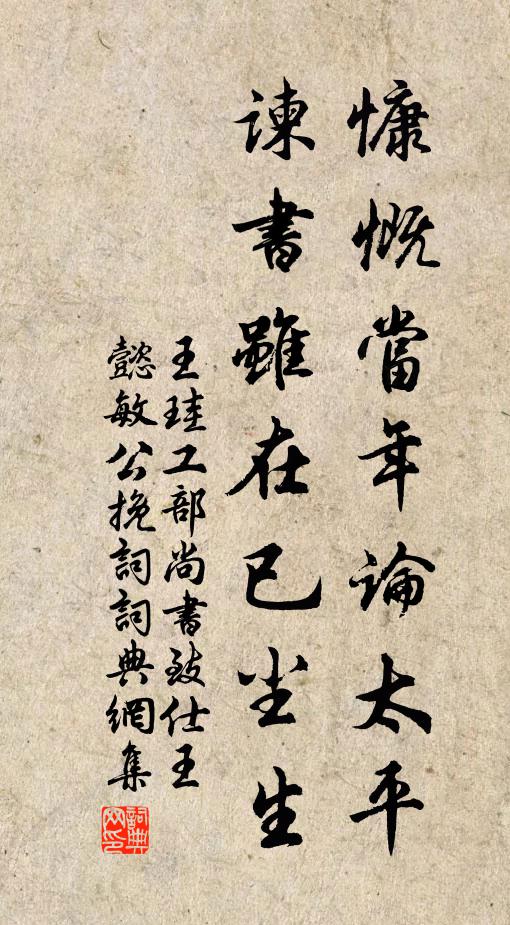 慷慨當年論太平
諫書雖在已尘生
王珪工部尚書致仕王
懿敏公挽詞詞典網集
詞典
网印